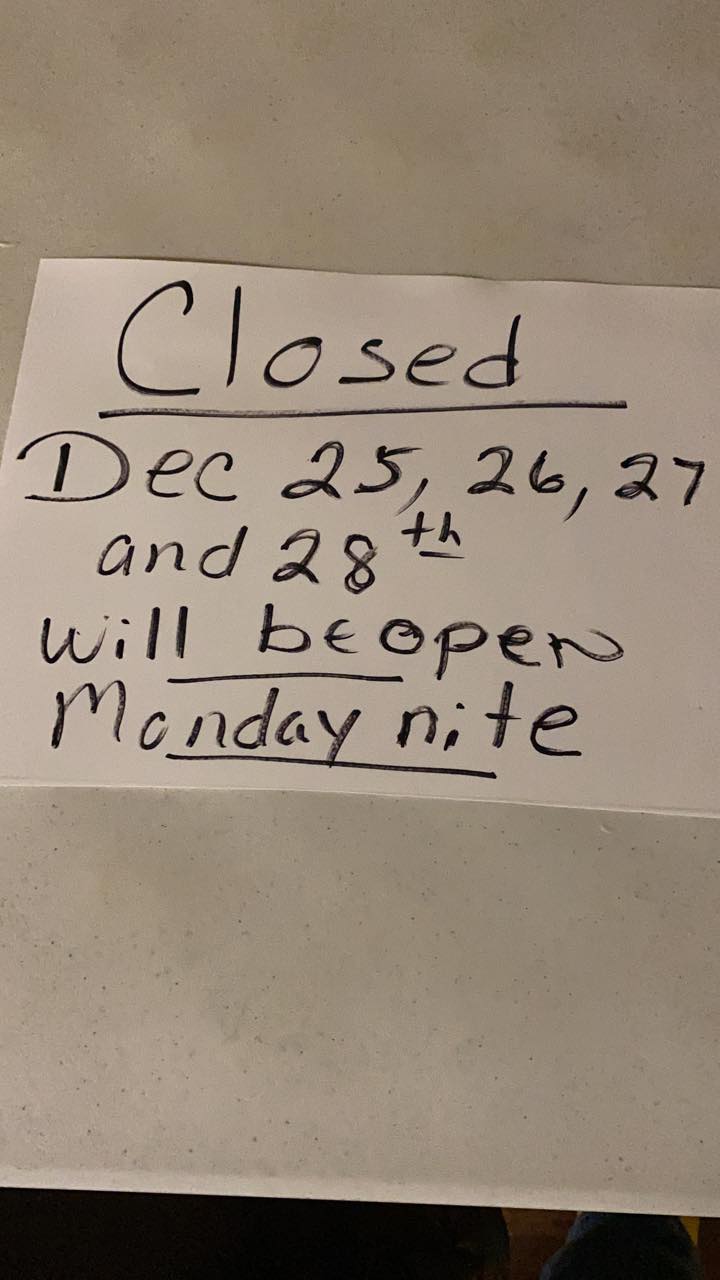 Closed
Dec 25, 26, 27
and 28th
will be open
Monday nite